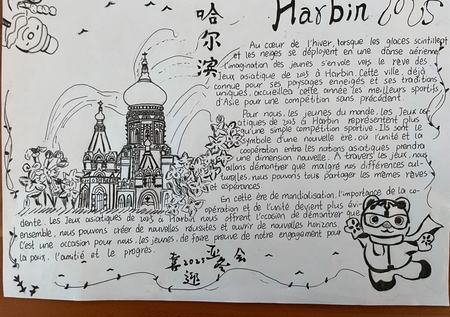 哈尔滨
Harbin 2025
Au cœur de l'hiver, lorsque les glaces scintillent
et les neiges se déploient en une danse aérienne
l'imagination des jeunes s'envole vers le rêve des
Jeux asiatique de 2025 à Harbin. Cette ville, déjà
connue pour ses paysages enneigés et ses traditions
uniques, accueillera cette année les meilleurs sportifs
d'Asie pour une compétition sans précédent.
Pour nous, les jeunes du monde, les Jeux as-
iatiques de 2025 à Harbin représentent plus
qu'une simple compétition sportive. Ils sont le
symbole d'une nouvelle ère, où l'unité et la
coopération entre les nations asiatiques prendra
une dimension nouvelle. A travers les jeux, nous
allons démontrer que malgré nos différences cul-
turelles, nous pouvons tous partager les mêmes rêves
et espérances.
En cette ère de mondialisation, l'importance de la co-
opération et de l'unité devient plus évi-
dente. Les Jeux asiatiques de 2025 à Harbin nous offrent l'occasion de démontrer que
ensemble, nous pouvons créer de nouvelles réussites et ouvrir de nouvelles horizons.
C'est une occasion pour nous, les jeunes, de faire preuve de notre engagement pour
la paix, l'amitié et le progrès.
喜迎2025亚冬会